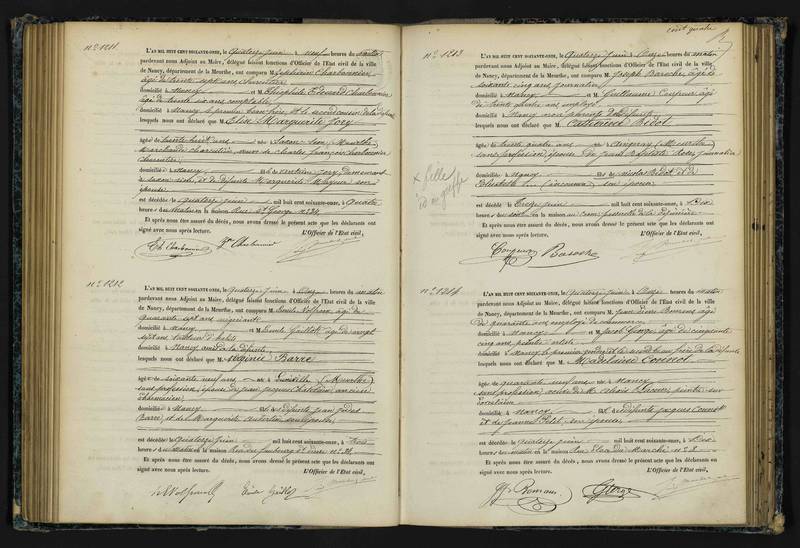 n° 1211.
L'AN MIL HUIT CENT SOIXANTE-ONZE, le quatorze juin à neuf heures du matin
pardevant nous Adjoint au Maire, délégué faisant fonctions d'Officier de l'Etat civil de la ville
de Nancy, département de la Meurthe, ont comparu M. Charbonnier
âgé de trente sept ans charcutier
domicilié à Nancy et M. Théophile Edouard Charbonnier
âgé de trente six ans comptable
domicilié à Nancy le premier et le second cousin de la défunte
lesquels nous ont déclaré que M. Elise Marguerite Jory
âgée de trente huit ans née à Saxon Sion (Meurthe)
marchande charcutière, veuve de Charles François Charbonnier
charcutier
domiciliée à Nancy fille de Jory demeurant
à Saxon Sion, et de défunte Marguerite son
épouse
est décédée le quatorze juin mil huit cent soixante-onze, à quatre
heures du matin en la maison Rue St George n° 34
Et après nous être assuré du décès, nous avons dressé le présent acte que les déclarants ont
signé avec nous après lecture. L'Officier de l'Etat civil,
Ch. Charbonnier
n° 1212
L'AN MIL HUIT CENT SOIXANTE-ONZE, le quatorze juin à heures du matin
pardevant nous Adjoint au Maire, délégué faisant fonctions d'Officier de l'Etat civil de la ville
de Nancy, département de la Meurthe, ont comparu M. Emile âgé de
quarante sept ans négociant
domicilié à Nancy et M. Emile Gaillot âgé de vingt
sept ans tailleur d'habits
domicilié à Nancy amis de la défunte
lesquels nous ont déclaré que M. Virginie Barre
âgée de soixante neuf ans née à Lunéville (Meurthe)
sans profession, épouse de Jean Jacques Chatelain ancien
pharmacien
domiciliée à Nancy fille de défunts Jean
Barre, et de Marguerite
est décédée le quatorze juin mil huit cent soixante-onze, à trois
heures du matin en la maison Rue du faubourg St n° 38
Et après nous être assuré du décès, nous avons dressé le présent acte que les déclarants ont
signé avec nous après lecture. L'Officier de l'Etat civil,
Emile Gaillot
cent quatre
n° 1213
L'AN MIL HUIT CENT SOIXANTE-ONZE, le quatorze juin à onze heures du matin
pardevant nous Adjoint au Maire, délégué faisant fonctions d'Officier de l'Etat civil de la ville
de Nancy, département de la Meurthe, ont comparu M. Joseph Baroche âgé de
soixante cinq ans journalier
domicilié à Nancy et M. Guillaume Coupeur âgé
de trente quatre ans employé
domicilié à Nancy non parents de la défunte
lesquels nous ont déclaré que M. Catherine Bidot
âgée de trente quatre ans née à (Meurthe)
sans profession épouse de Jean Baptiste journalier
domiciliée à Nancy de Nicolas Bidot et d'
Elisabeth son épouse
× fille
id au greffe
est décédée le treize juin mil huit cent soixante-onze, à dix
heures du soir en la maison
Et après nous être assuré du décès, nous avons dressé le présent acte que les déclarants ont
signé avec nous après lecture. L'Officier de l'Etat civil,
Coupeur Baroche
n° 1214
L'AN MIL HUIT CENT SOIXANTE-ONZE, le quatorze juin à onze heures du matin
pardevant nous Adjoint au Maire, délégué faisant fonctions d'Officier de l'Etat civil de la ville
de Nancy, département de la Meurthe, ont comparu M. Jean Pierre Romans âgé
de quarante ans employé de commerce
domicilié à Nancy et M. Jacob George, âgé de cinquante
cinq ans peintre artiste
domicilié à Nancy le premier gendre et le second beau frère de la défunte
lesquels nous ont déclaré que M. Madelaine
âgée de quarante neuf ans née à Nancy
sans profession, veuve de peintre sur
porcelaine
domiciliée à Nancy fille de défunts Jacques
et de Jeanne Petit, son épouse
est décédée le quatorze juin mil huit cent soixante-onze, à dix
heures du matin en la maison Rue Place du Marché n° 8
Et après nous être assuré du décès, nous avons dressé le présent acte que les déclarants ont
signé avec nous après lecture. L'Officier de l'Etat civil,
Romans George